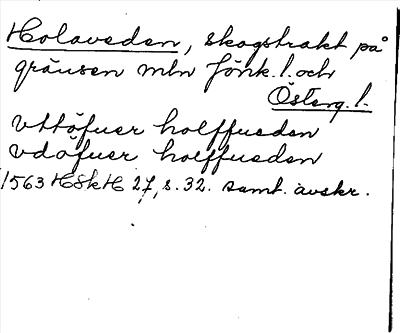 Holaveden, skogstrakt på
gränsen mln Jönk. l. och
Österg. l.
vttöfuer holffueden
vdöfuer holffueden
1563 HSkH 27, s. 32. samt. avskr.